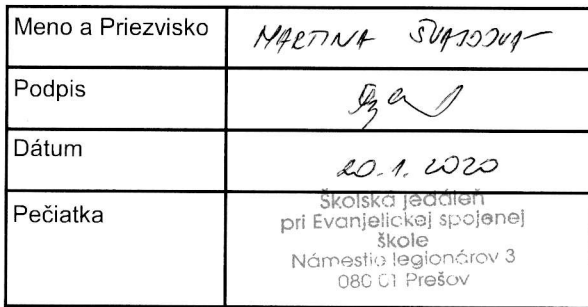 Meno a Priezvisko MARTINA
Podpis
Dátum 20.1.2020
Pečiatka
Školská jedáleň
pri Evanjelickej spojenej
škole
Námestie legionárov 3
080 01 Prešov